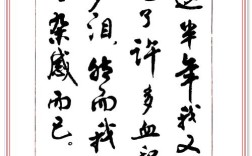 这半年我又
了许多血和
多泪，然而我
杂感而已。